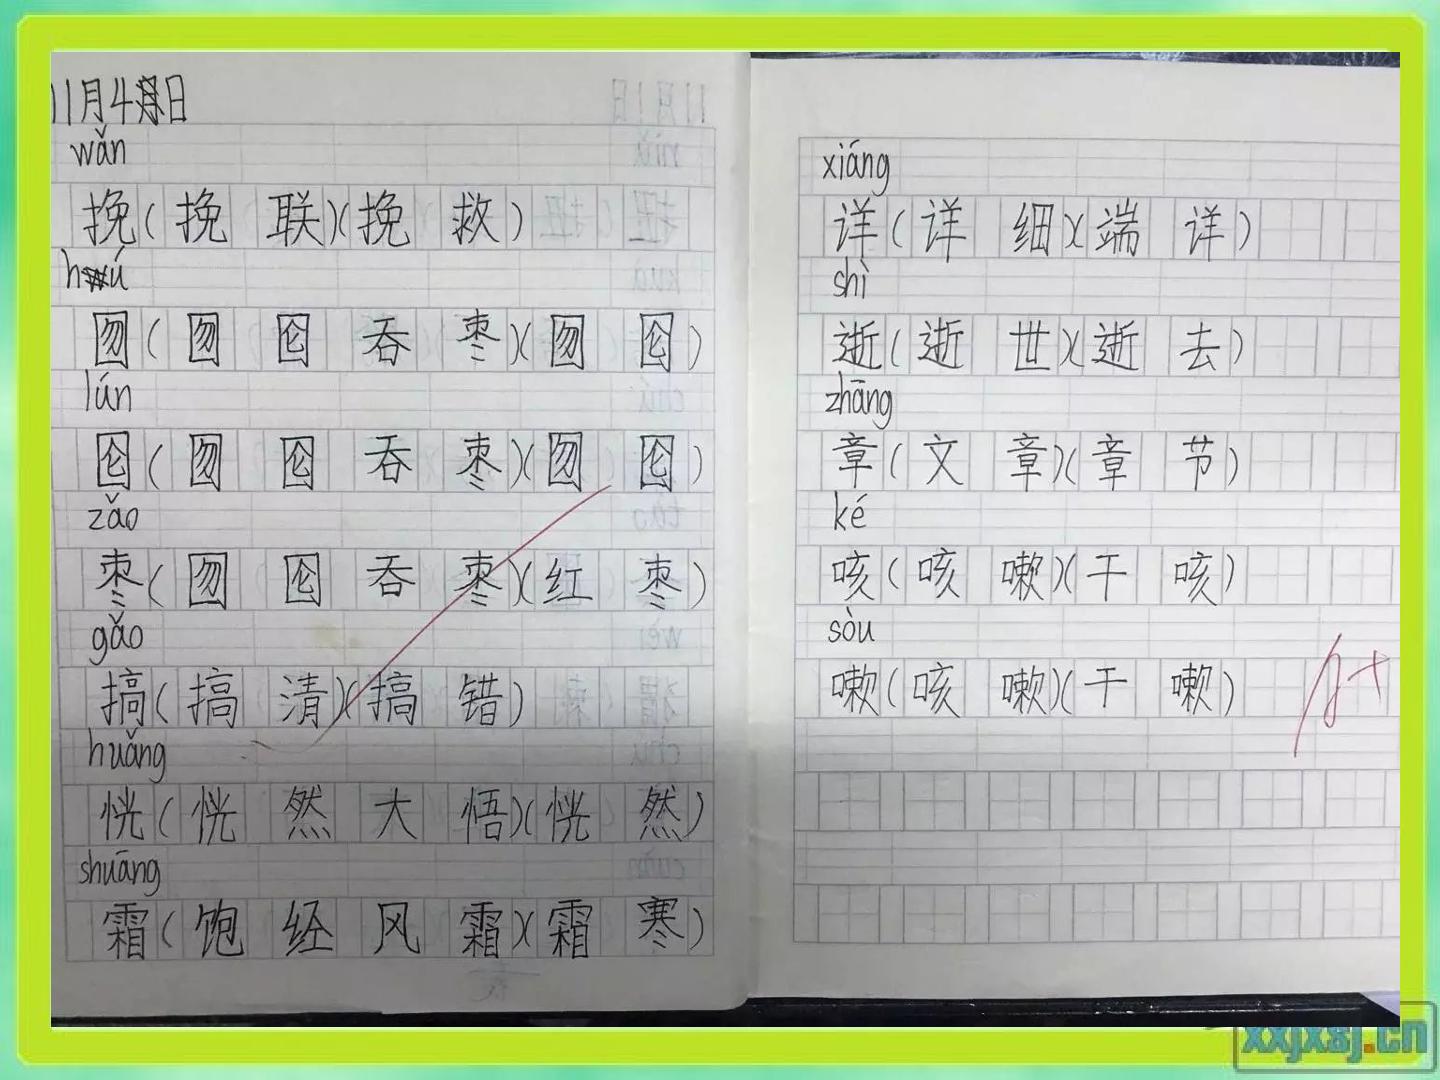 11月4日
wǎn
挽(挽联)(挽救)
hú
囫(囫囵吞枣)(囫囵)
lún
囵(囫囵吞枣)(囫囵)
zǎo
枣(囫囵吞枣)(红枣)
gǎo
搞(搞清)(搞错)
huǎng
恍(恍然大悟)(恍然)
shuāng
霜(饱经风霜)(霜寒)
xiáng
详(详细)(端详)
shì
逝(逝世)(逝去)
zhāng
章(文章)(章节)
ké
咳(咳嗽)(干咳)
sòu
嗽(咳嗽)(干嗽)
A+
xxjxsj.cn